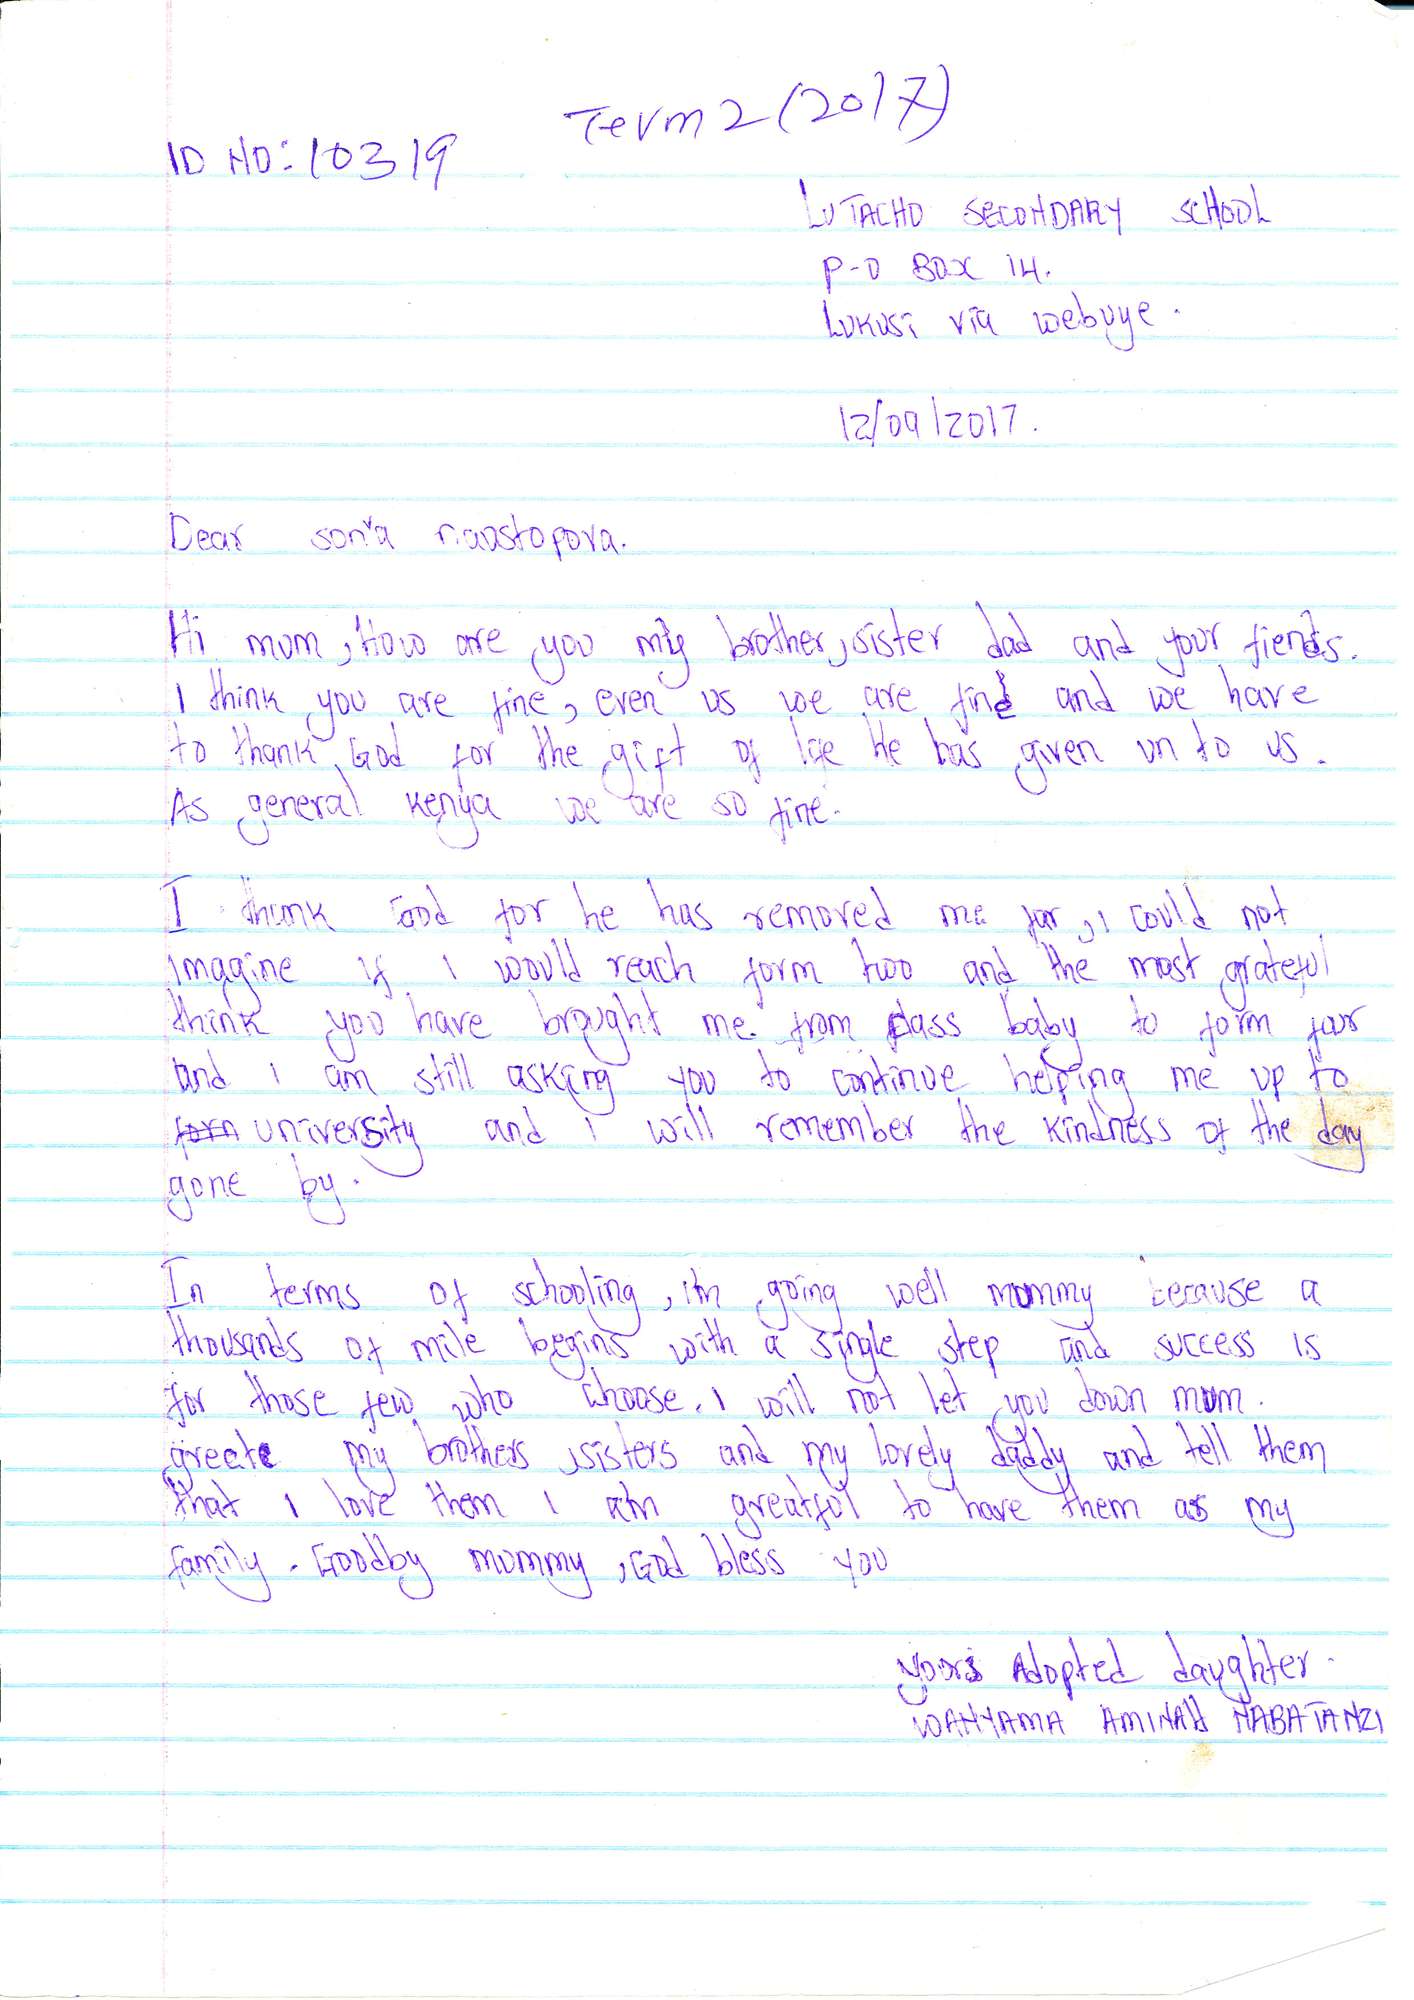 Term 2 (2017)
ID NO: 10319
LUTACHO SECONDARY SCHOOL
P-O BOX 14.
Lukusi via webuye.
12/09/2017.
Dear sonia naostopova.
Hi mum, How are you my brother, sister dad and your fiends.
I think you are fine, even us we are fine and we have
to thank God for the gift of life He has given un to us.
As general kenya we are so fine.
I thank God for he has removed me far, i could not
imagine if i would reach form two and the most grateful
think you have brought me from class baby to form four
and i am still asking you to continue helping me up to
university and i will remember the kindness of the day
gone by.
In terms of schooling, i'm going well mommy because a
thousands of mile begins with a single step and success is
for those few who choose. i will not let you down mum.
greate my brothers, sisters and my lovely daddy and tell them
that i love them i am greatful to have them as my
family. Goodby mummy, God bless you
yours Adopted daughter.
WANYAMA AMINAH NABATANZI